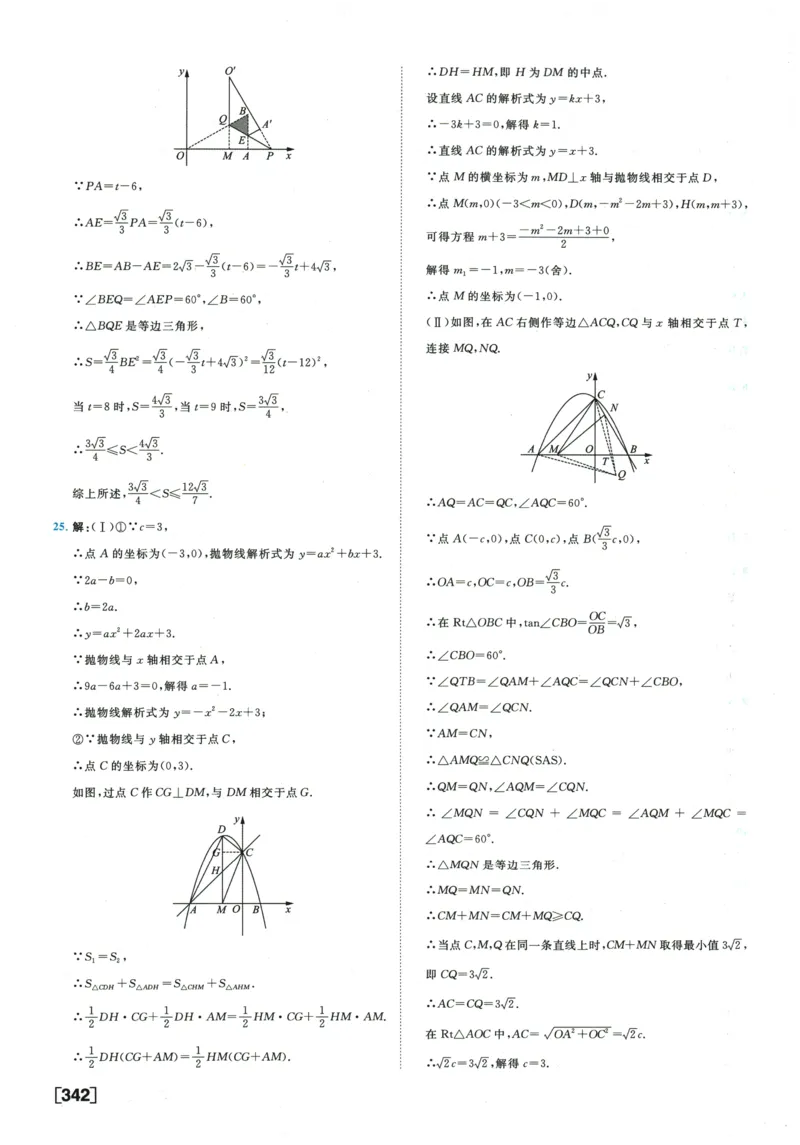 y
O′
Q
B
A′
E
O
M
A
P
x
∵PA=t-6,
∴AE=√3/3 PA=√3/3(t-6),
∴BE=AB-AE=2√3-√3/3(t-6)=-√3/3 t+4√3,
∵∠BEQ=∠AEP=60°,∠B=60°,
∴△BQE是等边三角形,
∴S=√3/4 BE²=√3/4(-√3/3 t+4√3)²=√3/12(t-12)²,
当t=8时,S=4√3/3,当t=9时,S=3√3/4,
∴3√3/4≤S<4√3/3.
综上所述,3√3/4<S≤12√3/7.
25. 解:(Ⅰ)①∵c=3,
∴点A的坐标为(-3,0),抛物线解析式为y=ax²+bx+3.
∵2a-b=0,
∴b=2a.
∴y=ax²+2ax+3.
∵抛物线与x轴相交于点A,
∴9a-6a+3=0,解得a=-1.
∴抛物线解析式为y=-x²-2x+3;
②∵抛物线与y轴相交于点C,
∴点C的坐标为(0,3).
如图,过点C作CG⊥DM,与DM相交于点G.
y
D
G
C
H
A
M
O
B
x
∵S₁=S₂,
∴S△CDH+S△ADH=S△CHM+S△AHM.
∴1/2 DH·CG+1/2 DH·AM=1/2 HM·CG+1/2 HM·AM.
∴1/2 DH(CG+AM)=1/2 HM(CG+AM).
[342]
∴DH=HM,即H为DM的中点.
设直线AC的解析式为y=kx+3,
∴-3k+3=0,解得k=1.
∴直线AC的解析式为y=x+3.
∵点M的横坐标为m,MD⊥x轴与抛物线相交于点D,
∴点M(m,0)(-3<m<0),D(m,-m²-2m+3),H(m,m+3),
可得方程m+3=(-m²-2m+3+0)/2,
解得m₁=-1,m=-3(舍).
∴点M的坐标为(-1,0).
(Ⅱ)如图,在AC右侧作等边△ACQ,CQ与x轴相交于点T,
连接MQ,NQ.
y
C
N
A
M
O
B
T
x
Q
∴AQ=AC=QC,∠AQC=60°.
∵点A(-c,0),点C(0,c),点B(√3/3 c,0),
∴OA=c,OC=c,OB=√3/3 c.
∴在Rt△OBC中,tan∠CBO=OC/OB=√3,
∴∠CBO=60°.
∵∠QTB=∠QAM+∠AQC=∠QCN+∠CBO,
∴∠QAM=∠QCN.
∵AM=CN,
∴△AMQ≌△CNQ(SAS).
∴QM=QN,∠AQM=∠CQN.
∴∠MQN=∠CQN+∠MQC=∠AQM+∠MQC=
∠AQC=60°.
∴△MQN是等边三角形.
∴MQ=MN=QN.
∴CM+MN=CM+MQ≥CQ.
∴当点C,M,Q在同一条直线上时,CM+MN取得最小值3√2,
即CQ=3√2.
∴AC=CQ=3√2.
在Rt△AOC中,AC=√(OA²+OC²)=√2c.
∴√2c=3√2,解得c=3.